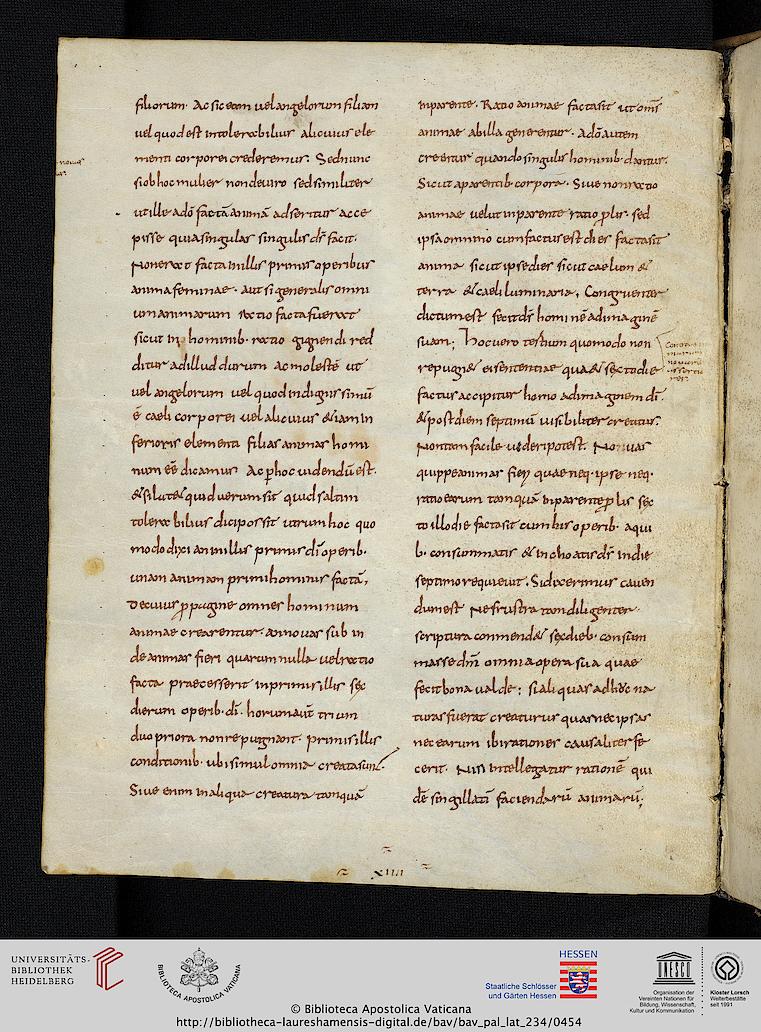 filiorum. Ac sic eam uel angelorum filiam
uel quod est intolerabilius alicuius ele
menti corporei crederemus. Sed nunc
si ob hoc mulier non de uiro sed similiter
ut ille adō factā animā adseritur acce
pisse quia singulas singulis dš facit.
Non erat facta in illis primis operibus
anima feminae. aut si generalis omni
um animarum ratio facta fuerat
sicut in hominib. ratio gignendi red
ditur ad illud durum ac molestē ut
uel angelorum uel quod indignissimū
ē caeli corporei uel alicuius &iam in
ferioris elementi filias animas homi
num eē dicamus Ac phoc uidendū est.
&si lat& quid uerum sit quid saltim
tolerabilius dici possit utrum hoc quo
modo dixi an in illis primis dī operib.
unam animam primi hominis factā,
De cuius ppagine omnes hominum
animae crearentur. an nouas sub in
de animas fieri quarum nulla uel ratio
facta praecesserit in primis illis sex
dierum operib. dī. horum aut trium
duo priora non repugnant. primis illis
conditionib. ubi simul omnia creata sunt.
Siue enim in aliqua creatura tamquā
in parente. Ratio animae facta sit ut omš
animae ab illa generentur. A dō autem
creentur quando singulis hominib. dantur.
Sicut a parentib. corpora. Siue non ratio
animae uelut in parente ratio plis. sed
ipsa omnino cum factus est dies facta sit
anima sicut ipse dies sicut caelum &
terra & caeli luminaria, Congruenter
dictum est fecit dš hominē ad imaginē
suam; Hoc uero tertium quomodo non
repugn& ei sententiae qua & sexto die
factus accipitur homo ad imaginem dī
& post diem septimū uisibiliter creatus.
Non tam facile uideri potest. Nouas
quippe animas fieri quae neq. ipse neq.
ratio earum tamquā in parente plis sex
to illo die facta sit cum his operib. a qui
b. consummatis & inchoatis dš in die
septimo requieuit. Si dixerimus cauen
dum est Ne frustra tam diligenter
scriptura commend& sex dieb. consum
masse dm omnia opera sua quae
fecit bona ualde; si aliquas adhuc na
turas fuerat creaturus quas nec ipsas
nec earum ibi rationes causaliter fe
cerit. Nisi intellegatur rationē qui
dē singillatī faciendarū animarū;
XIIII
UNIVERSITÄTS-
BIBLIOTHEK
HEIDELBERG
BIBLIOTHECA APOSTOLICA VATICANA
HESSEN
Staatliche Schlösser
und Gärten Hessen
UNESCO
Organisation der
Vereinten Nationen für
Bildung, Wissenschaft,
Kultur und Kommunikation
Kloster Lorsch
Welterbestätte
seit 1991
© Biblioteca Apostolica Vaticana
http://bibliotheca-laureshamensis-digital.de/bav/bav_pal_lat_234/0454